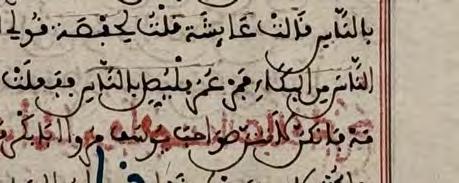 بالناس قالت عايشة قلت لحفصة قولي ا
الناس من البكاء فمر عمر فليصل بالناس ففعلت
مه فانكن لانتن صواحب يوسف مروا ابا بكر ف